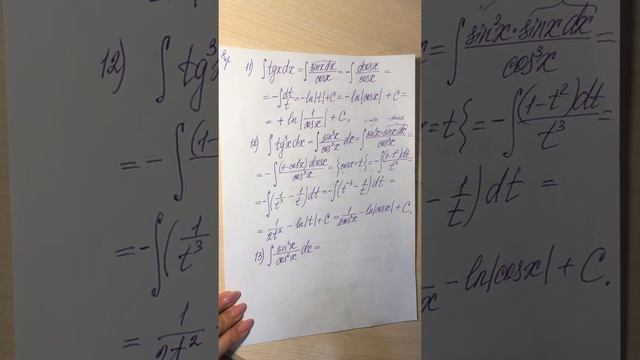 11) ∫tgxdx = ∫ sinxdx/cosx = -∫ dcosx/cosx =
= -∫ dt/t = -ln|t| + C = -ln|cosx| + C =
= + ln|1/cosx| + C.
12) ∫tg³xdx = ∫ sin³x/cos³x dx = ∫ sin²x·sinxdx/cos³x =
= -∫ (1-cos²x)dcosx/cos³x = {cosx=t} = -∫ (1-t²)dt/t³ =
= -∫(1/t³ - 1/t)dt = -∫(t⁻³ - 1/t)dt =
= 1/2t² - ln|t| + C = 1/2cos²x - ln|cosx| + C.
13) ∫ sin²x/cos⁶x dx =
12) ∫tg³
= -∫ (1-
= -∫(1/t³
= 1/2t²
= ∫ sin²x·sinxdx/cos³x =
x=t} = -∫ (1-t²)dt/t³
1/t)dt =
x - ln|cosx| + C.